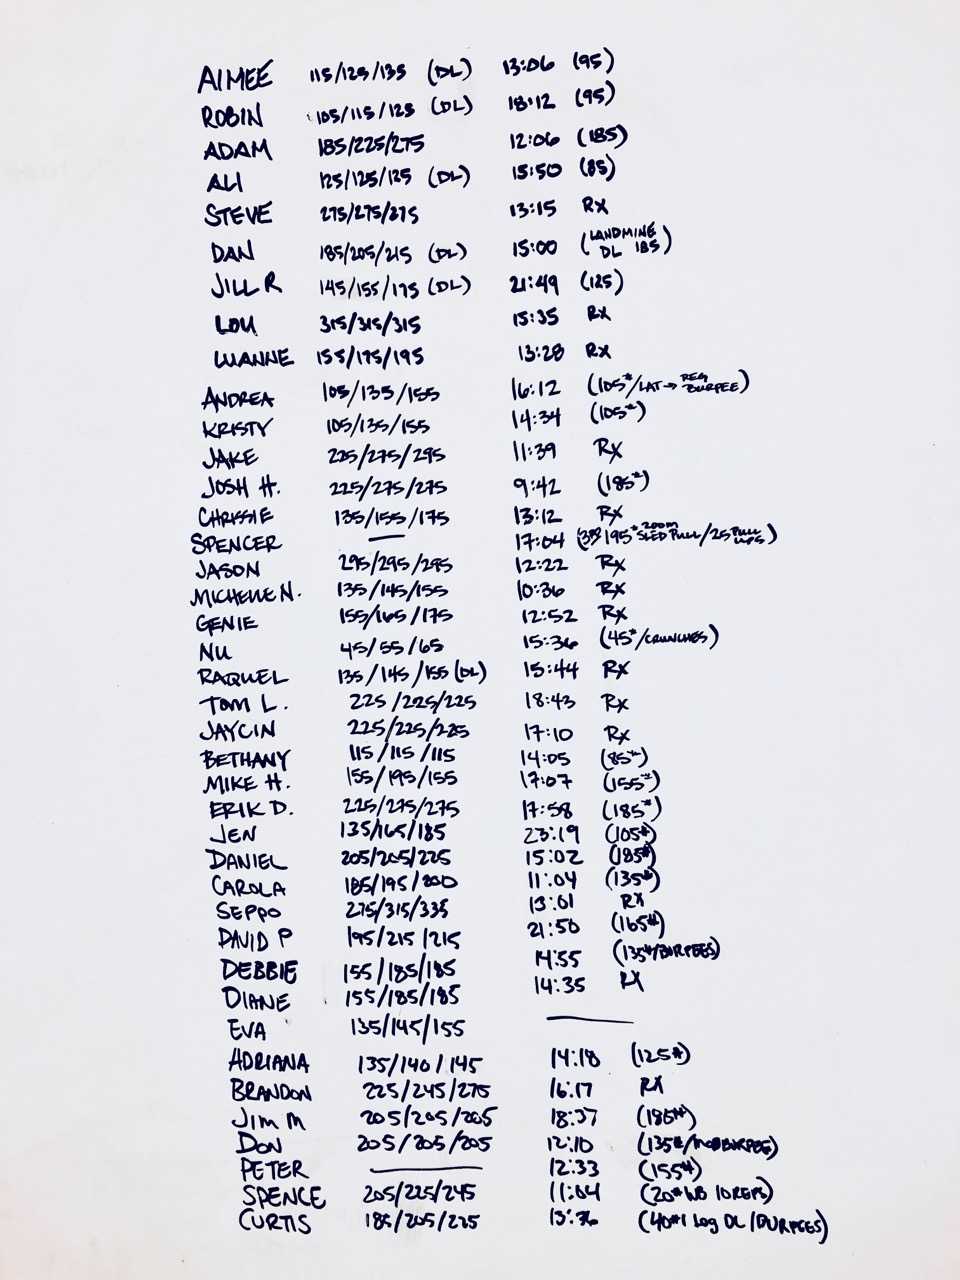 AIMEE 115/125/135 (DL) 13:06 (95)
ROBIN 105/115/125 (DL) 18:12 (95)
ADAM 185/225/275 12:06 (185)
ALI 125/125/125 (DL) 15:50 (85)
STEVE 275/275/275 13:15 RX
DAN 185/205/215 (DL) 15:00 (LANDMINE DL 185)
JILL R 145/155/175 (DL) 21:49 (125)
LOU 315/315/315 15:35 RX
LUANNE 155/175/195 13:28 RX
ANDREA 105/135/155 16:12 (105#/LAT→REG BURPEE)
KRISTY 105/135/155 14:34 (105#)
JAKE 225/275/295 11:39 RX
JOSH H. 225/275/275 9:42 (185#)
CHRISSIE 135/155/175 13:12 RX
SPENCER — 17:04 195# 200M SLED PULL/25 PULL UPS)
JASON 295/295/295 12:22 RX
MICHELLE N. 135/145/155 10:36 RX
GENIE 155/165/175 12:52 RX
NU 45/55/65 15:36 (45#/CRUNCHES)
RAQUEL 135/145/155 (DL) 15:44 RX
TOM L. 225/225/225 18:43 RX
JAYCIN 225/225/225 17:10 RX
BETHANY 115/115/115 14:05 (85#)
MIKE H. 155/195/155 17:07 (155#)
ERIK D. 225/275/275 17:58 (185#)
JEN 135/165/185 23:19 (105#)
DANIEL 205/205/225 15:02 (185#)
CAROLA 185/195/200 11:04 (135#)
SEPPO 275/315/335 13:01 RX
DAVID P 195/215/215 21:50 (165#)
DEBBIE 155/185/185 14:55 (135#/BURPEES)
DIANE 155/185/185 14:35 RX
EVA 135/145/155 —
ADRIANA 135/140/145 14:18 (125#)
BRANDON 225/245/275 16:17 RX
JIM M 205/205/205 18:37 (185#)
DON 205/205/205 12:10 (135#/ BURPEES)
PETER — 12:33 (155#)
SPENCE 205/225/245 11:04 (20# WB 10 REPS)
CURTIS 185/205/225 13:36 (40#1 LOG DL/BURPEES)